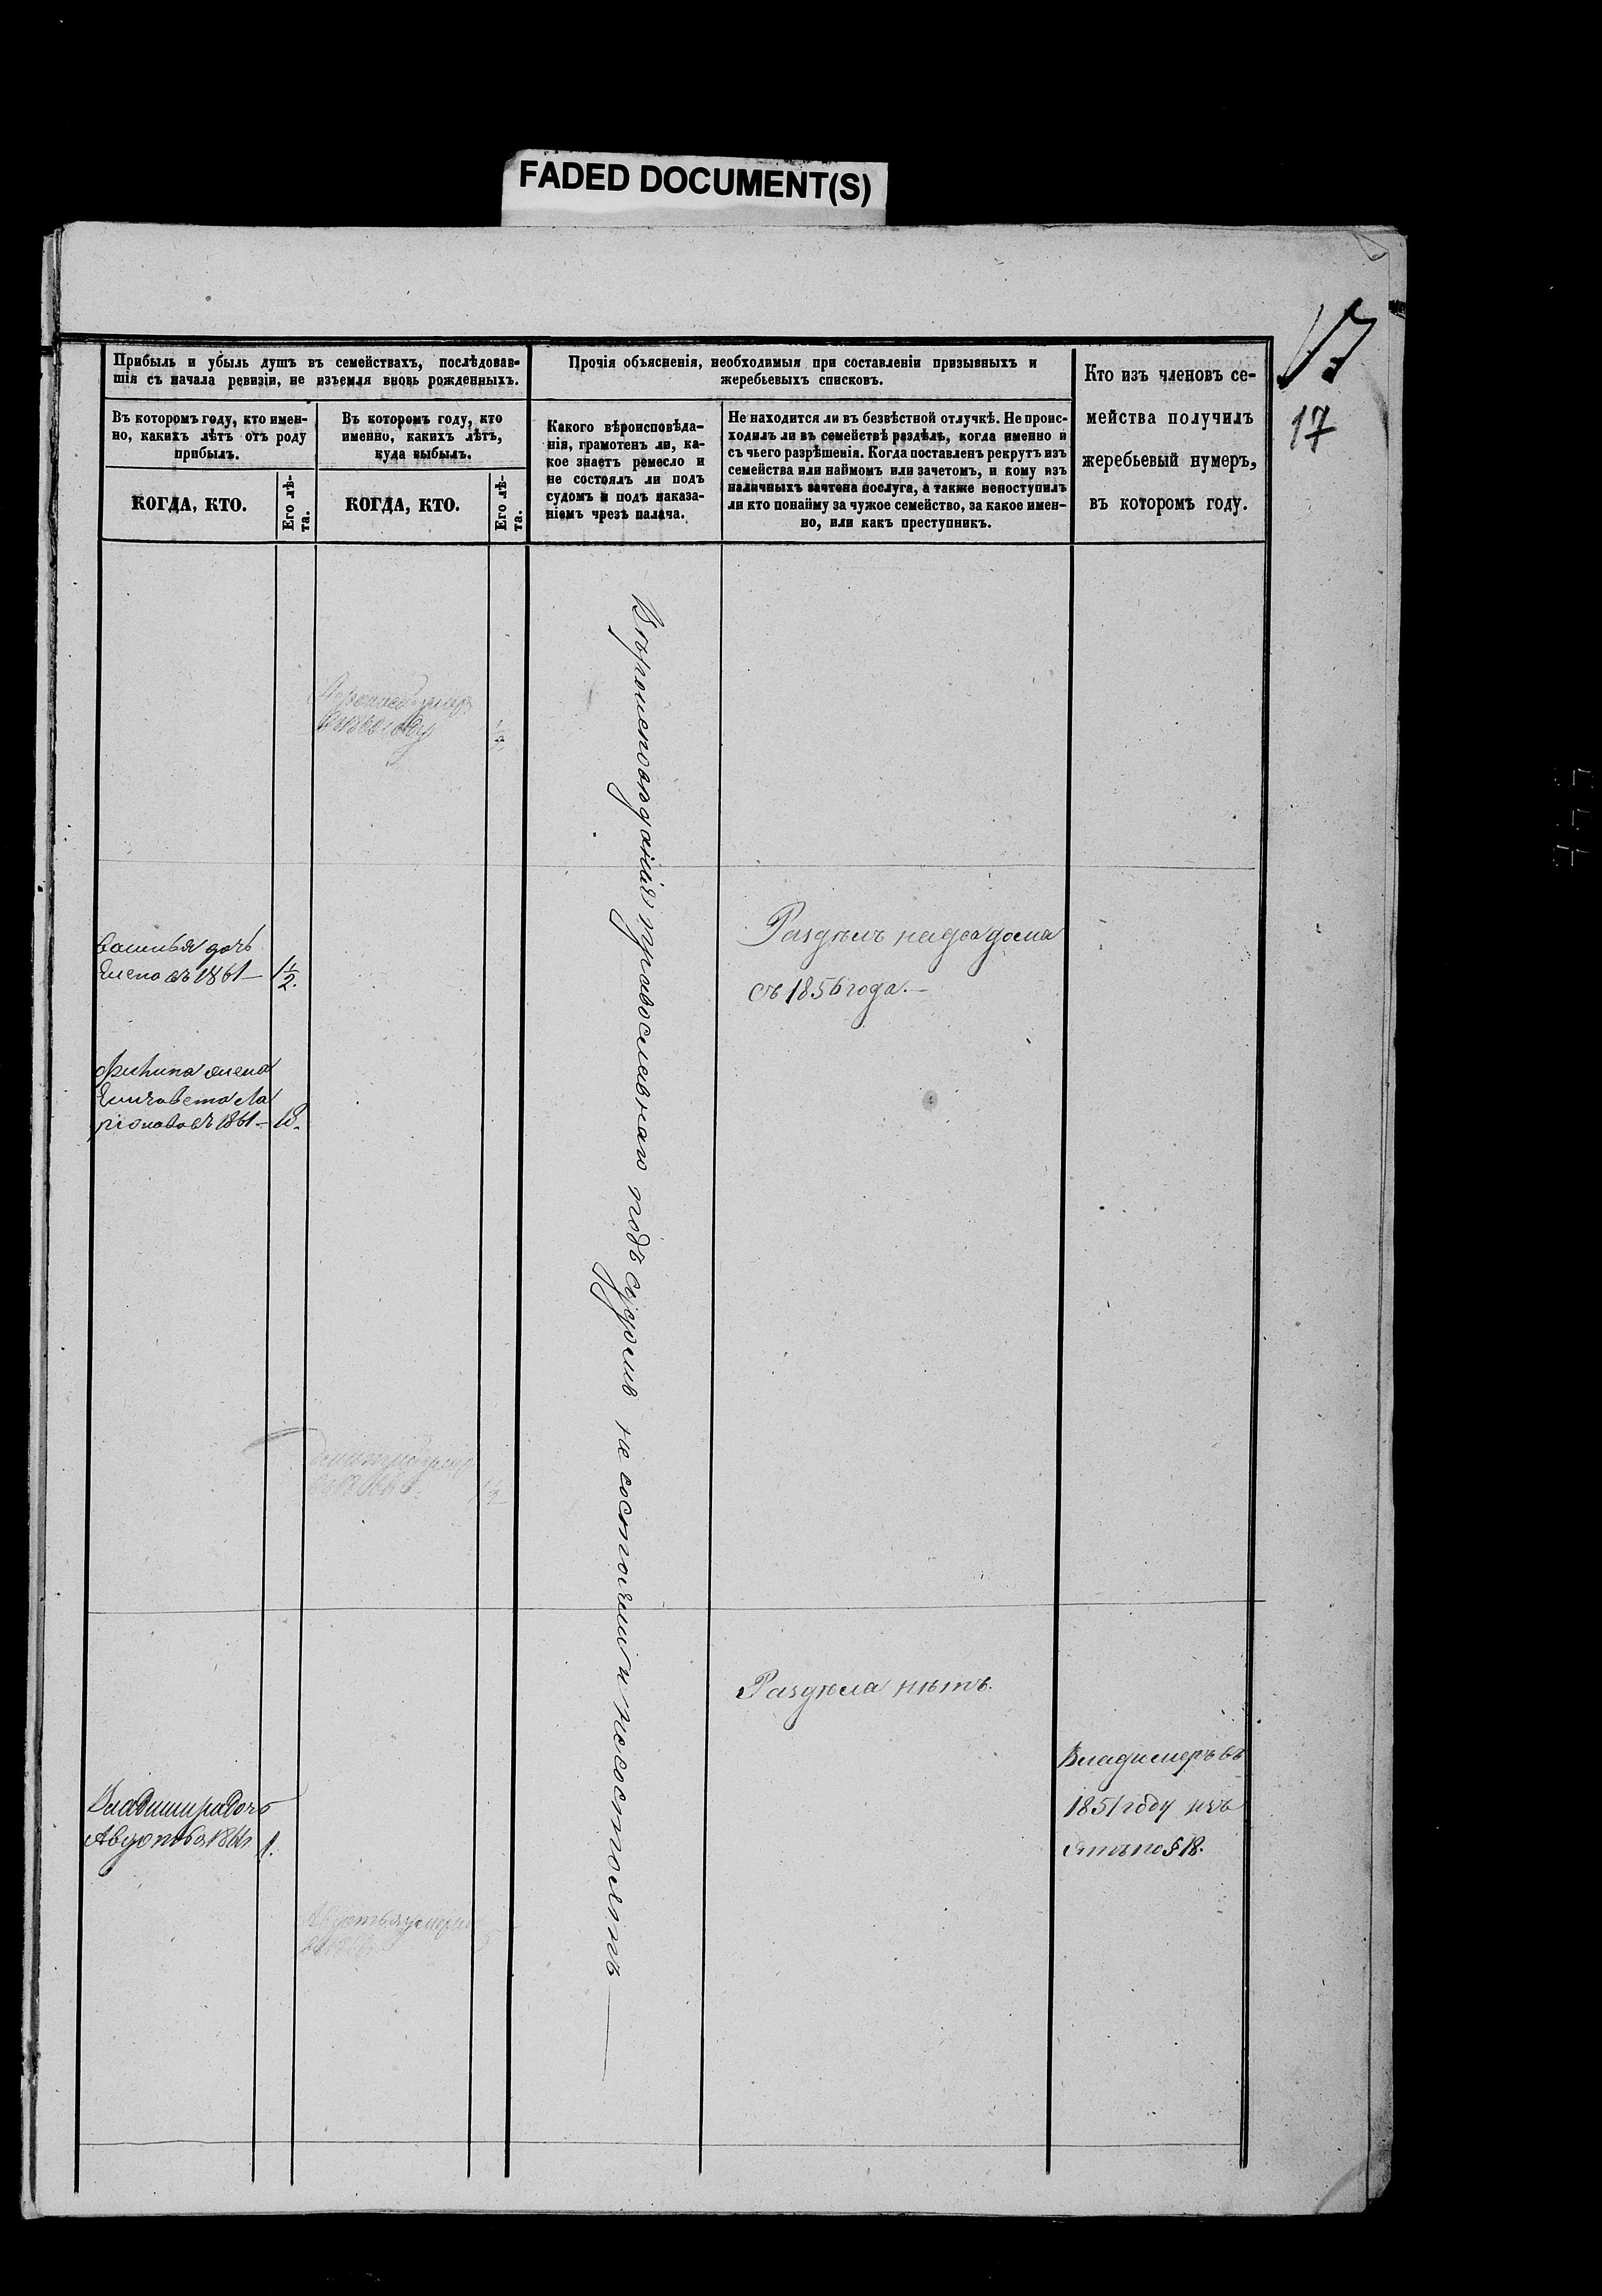 FADED DOCUMENT(S)
17
17
Прибыль и убыль душъ въ семействахъ, послѣдовав-
шія съ начала ревизіи, не изъемля вновь рожденныхъ.
Прочія объясненія, необходимыя при составленіи призывныхъ и
жеребьевыхъ списковъ.
Кто изъ членовъ се-
мейства получилъ
жеребьевый нумеръ,
въ которомъ году.
Въ которомъ году, кто имен-
но, какихъ лѣтъ отъ роду
прибылъ.
Въ которомъ году, кто
именно, какихъ лѣтъ,
куда выбылъ.
Какого вѣроисповѣда-
нія, грамотенъ ли, ка-
кое знаетъ ремесло и
не состоялъ ли подъ
судомъ и подъ наказа-
ніемъ чрезъ палача.
Не находится ли въ безвѣстной отлучкѣ. Не проис-
ходилъ ли въ семействѣ раздѣлъ, когда именно и
съ чьего разрѣшенія. Когда поставленъ рекрутъ изъ
семейства или наймомъ или зачетомъ, и кому изъ
наличныхъ зачтена послуга, а также непоступилъ
ли кто понайму за чужое семейство, за какое имен-
но, или какъ преступникъ.
КОГДА, КТО.
Его лѣ-
та.
КОГДА, КТО.
Его лѣ-
та.
Вѣроисповѣданія православнаго подъ судомъ не состояли и несостоятъ
дочь
Елена въ 1861 — 1½.
Раздѣлъ на два дома
съ 1856 года. —
Елизавета Ла
ріонова въ 1861 — 18.
Раздѣла нѣтъ.
Владимеръ въ
1851 году изъ
ятъ по § 18.
Владимира дочь
Авдотья 1.